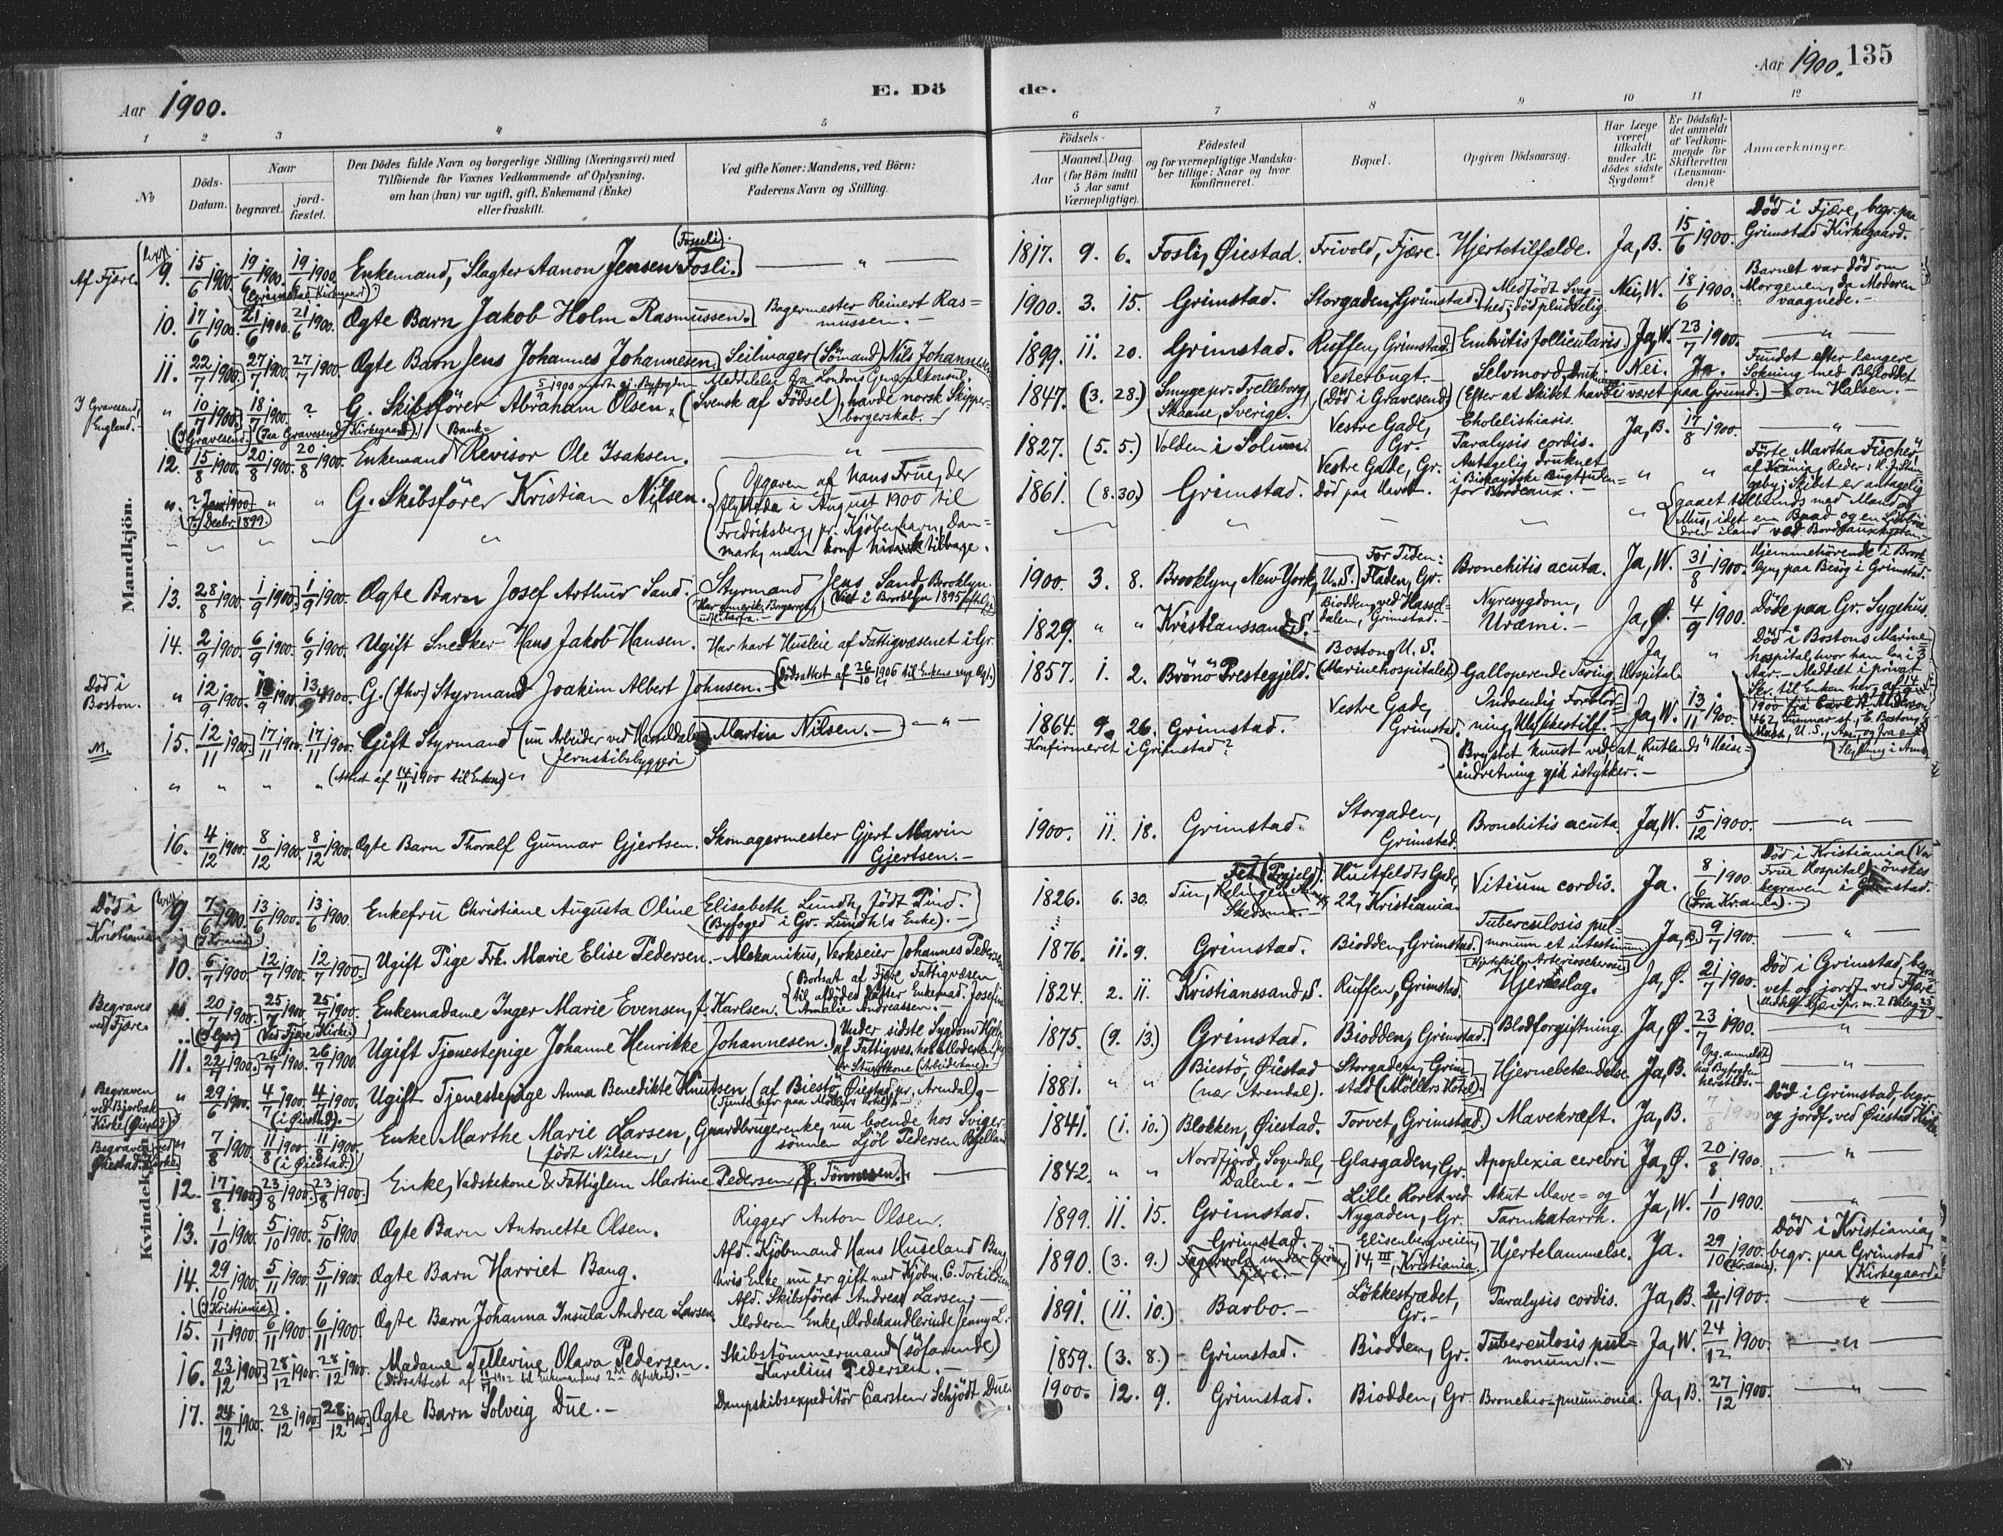 Aar 1900.
E. Dö
de.
Aar 1900.
135
1
2
3
4
5
6
7
8
9
10
11
12
No
Döds-Datum.
Naar
begravet.
jord-fæstet.
Den Dödes fulde Navn og borgerlige Stilling (Næringsvei) med
Tilföiende for Voxnes Vedkommende af Oplysning,
om han (hun) var ugift, gift, Enkemand (Enke)
eller fraskilt.
Ved gifte Koner: Mandens, ved Börn:
Faderens Navn og Stilling.
Födsels-
Aar
Maaned. Dag.
(for Börn indtil
5 Aar samt
Værnepligtige).
Födested
og for værnepligtige Mandska-
ber tillige: Naar og hvor
konfirmeret.
Bopæl.
Opgiven Dödsaarsag.
Har Læge
været
tilkaldt
under Af-
dödes sidste
Sygdom?
Er Dödsfal-
det anmeldt
af Vedkom-
mende for
Skifteretten
(Lensman-
den)?
Anmærkninger.
Mandkjön.
Af Fjære.
9. 15/6 1900. 19/6 1900. 19/6 1900. Enkemand, Slagter Aanon Jensen Fosli. (Fosseli). — " —
(Grimstad Kirkegaard)
1817. 9. 6. Fosli, Øiestad. Frivold, Fjære. Hjertetilfælde. Ja, B. 15/6 1900. Död i Fjære, begr. paa
Grimstad Kirkegaard.
10. 17/6 1900. 21/6 1900. 21/6 1900. Ægte Barn Jakob Holm Rasmussen. Bagermester Reinert Ras=
mussen. —
1900. 3. 15. Grimstad. Storgaden, Grimstad. Medfödt Svag=
hed; död pludselig. Nei, W. 18/6 1900. Barnet var död om
Morgenen, da Moderen
vaagnede. —
11. 22/7 1900. 27/7 1900. 27/7 1900. Ægte Barn Jens Johannes Johannesen. Seilmager (Sömand) Nils Johannesen
1899. 11. 20. Grimstad. Ruffen, Grimstad. Entritis follicularis. Ja, W. 23/7 1900. — " —
I Gravesend,
England. —
" 10/7 1900. 18/7 1900. ? G. Skibsförer Abraham Olsen. (Svensk af Födsel) havde norsk Skipper-
borgerskab. —
Meddelelse fra Londons Generalkonsul:
(I Gravesend. (Paa Gravesend Kirkegaard).
1847. (3. 28.) Smyge pr. Trelleborg,
Skaane, Sverige. Vesterbugt. —
(Död i Gravesend) Selvmord, Nei. Ja.
(Efter at Skibet havde været paa Grund.) — Fundet efter længere
Sökning med
om Halsen. —
12. 15/8 1900. 20/8 1900. 20/8 1900. Enkemand Bank-Revisor Ole Isaksen. — " —
1827. (5. 5.) Volden i Solum. Vestre Gade,
Gr. Cholelithiasis.
Paralysis cordis. Ja, B. 17/8 1900. — " —
" ? Jan. 1900. " " G. Skibsförer Kristian Nilsen.
? Decbr. 1899.
Opgaven af Hans Frue, der
flyttede i August 1900 til
Fredriksberg, pr. Kjöbenhavn, Dan=
mark, men kom tilbage.
1861. (8. 30.) Grimstad. Vestre Gade, Gr.
Död paa Havet. Antagelig druknet
i Biskayiske Bugt uden=
for Bordeaux. — " " Förte Martha Fischer
af Krania, Reder:
Skibet er antagelig
gaaet tilbunds med Mand og
Mus, idet en Baad og en
drev iland ved Bordeauxkysten.
13. 28/8 1900. 1/9 1900. 1/9 1900. Ægte Barn Josef Arthur Sand. Styrmand Jens Sand, Brooklyn.
(Viet i Brooklyn 1895
1900. 3. 8. Brooklyn, New York, U.S. For Tiden:
Fladen, Gr. Bronchitis acuta. Ja, W. 31/8 1900. Hjemmehörende i Brook=
lyn, paa Besög i Grimstad.
14. 2/9 1900. 6/9 1900. 6/9 1900. Ugift Snedker Hans Jakob Hansen. Har havt Husleie af Fattigvæsenet i Gr.
1829. " " Kristianssand, S. Biodden, ved Hassel=
dalen, Grimstad. — Nyresygdom,
Uræmi. — Ja, Ø. 4/9 1900. Döde paa Gr. Sygehus.
Död i
Boston.
" 12/9 1900. 13/9 1900. 13/9 1900. G. (fhv.) Styrmand Joakim Albert Johnsen. — (Dödsattest af 26/10 1906 til Enkens nye Ægt.)
1857. 1. 2. Brönö Prestegjeld. Boston, U.S.
(Marinehospitalet) Galloperende Tæring Ja,
Hospital " Död i Bostons Marine
hospital, hvor han lå i 3
Aar. — Meddelt i privat
Skr. til Enken her, af 14/9
1900 fra Carl A. Anderson
462, Sumner st., E. Boston,
Mass., U.S., Am.
M.
15. 12/11 1900. 17/11 1900. 17/11 1900. Gift Styrmand (nu Arbeider ved Hasseldalens
Jernskibsbyggeri Martin Nilsen. — — " —
1864. 9. 26. Grimstad. Vestre Gade,
Grimstad. Indvendig Forblöd=
ning, Ulykkestilf. — Ja, W. 13/11 1900.
Konfirmeret i Grimstad?
Brystet knust ved, at "Rutlands" Heise=
indretning gik istykker." —
" " " " (Attest af 14/11 1900 til Enken)
16. 4/12 1900. 8/12 1900. 8/12 1900. Ægte Barn Thoralf Gunnar Gjertsen. Skomagermester Gjert Marin
Gjertsen. —
1900. 11. 18. Grimstad. Storgaden,
Grimstad. Bronchitis acuta. Ja, W. 5/12 1900. — " —
Kvindekjön.
Död i
Kristiania
9. 7/6 1900. 13/6 1900. 13/6 1900. Enkefru Christiane Augusta Oline Elisabeth Lundh, födt Pind.
(I Krania) (Byfoged i Gr. Lundh's Enke). —
1826. 6. 30. Fet (Prgjeld). Huitfeldts Gade,
22, Kristiania. Vitium cordis. Ja. 8/6 1900.
(Fra Krania). — Död i Kristiania (Vor
Frue Hospital) önskes
begraven i Grimstad.
10. 6/7 1900. 12/7 1900. 12/7 1900. Ugift Pige Frk. Marie Elise Pedersen. — Mekanikus, Verkseier Johannes Pedersen
1876. 11. 9. Grimstad. Biodden, Grimstad. Tuberculosis pul=
monum et intestinum. Ja, B. 9/7 1900. — " —
Begraves
ved Fjære.
" 20/7 1900. 25/7 1900. 25/7 1900. Enkemadame Inger Marie Evensen, f. Karlsen. Bortsat af Fjære Fattigvæsen
(I Gr.) (Ved Fjære Kirke) Amalie Andreassen.
1824. 2. 11. Kristianssand, S. Ruffen, Grimstad. Hjerteslag. Ja, Ø. 21/7 1900. Död i Grimstad, begra
vet og jordf. ved Fjære
11. 22/7 1900. 26/7 1900. 26/7 1900. Ugift Tjenestepige Johanne Henrikke Johannesen. Under sidste Sygdom Hjælp
af Fattigves. hos Moderen,
1875. (9. 13.) Grimstad. Biodden, Grimstad. Blodforgiftning. Ja, Ø. 23/7 1900. — " —
Begraven
ved Bjorbæk
Kirke (Øiestad).
" 29/6 1900. 4/7 1900. 4/7 1900. Ugift Tjenestepige Anna Benedikte Knutsen (af Biestø, Øiestad, pr. Arendal).
(i Øiestad).
1881. " " Biestö, Øiestad
(nær Arendal). Storgaden, Grim
stad (Möllers Hotel) Hjernebetændelse. Ja, B. Opg. anmeldt
hos Byfogden
hersteds. — " —
Begraven ved
Øiestad Kirke.
" 7/8 1900. 11/8 1900. 11/8 1900. Enke Marthe Marie Larsen, Gaardbrugerenke, nu boende hos Sviger-
(i Øiestad.) född Nilsen, sönnen Ljöl Pedersen Bjelland
1841. (1. 10.) Blokken, Øiestad. Torvet, Grimstad. Mavekræft. Ja, B. 7/8 1900 Död i Grimstad, begr.
og jordf. ved Øiestad Kirke.
12. 17/8 1900. 23/8 1900. 23/8 1900. Enke, Vadskekone & Fattiglem Martine Pedersen, f. Tönnesen. —
1842. " " Nordfjord, Sogndal,
Dalene. — Glasgaden, Gr. Apoplexia cerebri Ja, Ø. 20/8 1900. — " —
13. 1/10 1900. 5/10 1900. 5/10 1900. Ægte Barn Antonette Olsen. Rigger Anton Olsen.
1899. 11. 15. Grimstad. Lille Roret ved
Nygaden, Gr. Akut Mave= og
Tarmkatarrh. Ja, W. 1/10 1900. — " —
14. 29/10 1900. 5/11 1900. 5/11 1900. Ægte Barn Harriet Bang. Afd. Kjöbmand Hans Huseland Bang
(I Kristiania) hvis Enke nu er gift med Kjöbm. C. Torkildsen
1890. (3. 9.) Grimstad. Elisenbergveien,
14, III, Kristiania. Hjertelammelse. Ja. 29/10 1900.
(Krania). Död i Kristiania,
begr. paa Grimstad
Kirkegaard.
15. 1/11 1900. 6/11 1900. 6/11 1900. Ægte Barn Johanna Insula Andrea Larsen. Afd. Skibsförer Andreas Larsen; —
Moderen Enke, Modehandlerinde Jenny L.
1891. (11. 10.) Barbo. — Løkkestrædet,
Gr. — Paralysis cordis. Ja, B. 2/11 1900. — " —
16. 23/12 1900. 28/12 1900. 28/12 1900. Madame Tellevine Olava Pedersen. Skibstömmermand (söfarende)
Karelius Pedersen. —
1859. (3. 8.) Grimstad. Biodden, Gr. Tuberculosis pul=
monum. — Ja, W. 24/12 1900. — " —
17. 24/12 1900. 28/12 1900. 28/12 1900. Ægte Barn Solveig Due. — Dampskibsexpeditör Carsten Schjödt Due.
1900. 12. 9. Grimstad. Biodden, Gr. Broncho=pneumonia. Ja, B. 27/12 1900. — " —